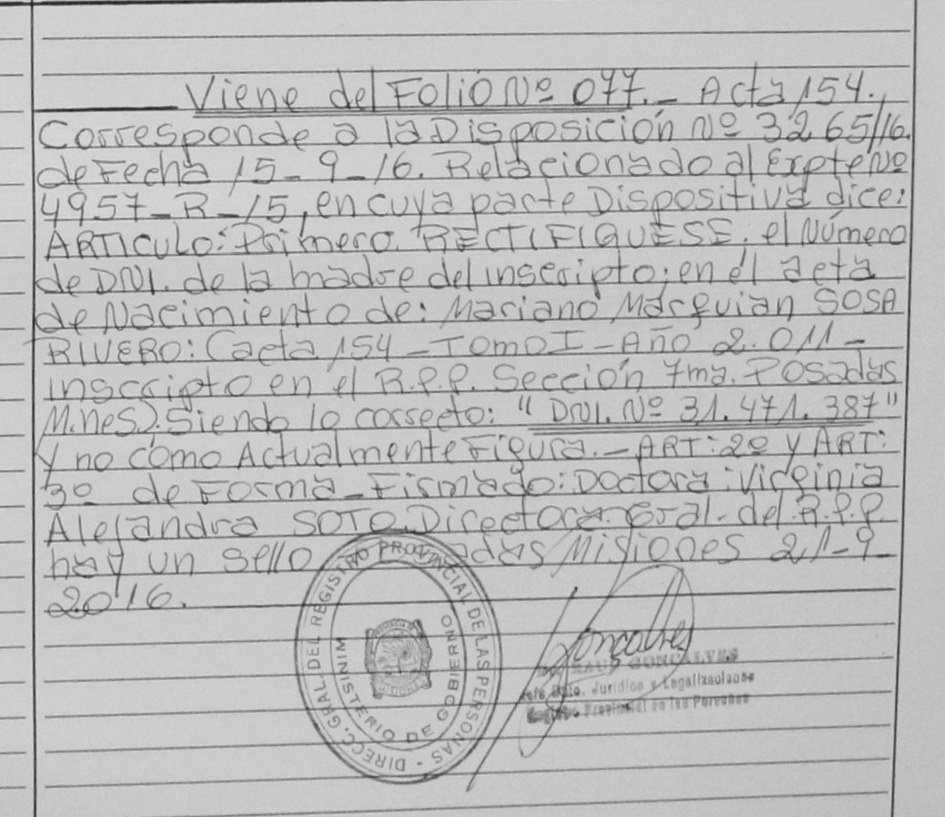 Viene del Folio Nº 077._ Acta 154.
Corresponde a la Disposición Nº 3265/16.
de Fecha 15_9_16. Relacionado al Expte Nº
4957_R_15, en cuya parte Dispositiva dice:
ARTICULO: Primero. RECTIFIQUESE. el Número
de DNI. de la madre del inscripto; en el acta
de Nacimiento de: Mariano SOSA
RIVERO: (acta 154_Tomo I_Año 2.011_
inscripto en el R.P.P. Sección 7ma. Posadas
Mnes). Siendo lo correcto: "DNI. Nº 31.471.387"
y no como Actualmente Figura._ART: 2º y ART:
3º de Forma_Firmado: Doctora: Virginia
Alejandra SOTO. Directora Gral. del R.P.P.
hay un sello Misiones 21_9_
2016.
DIRECC. GRAL DEL REGISTRO PROVINCIAL DE LAS PERSONAS -
MINISTERIO DE GOBIERNO
Goncalves
RAUL GONCALVES
Jurídico y Legalizaciones
Provincial de las Personas